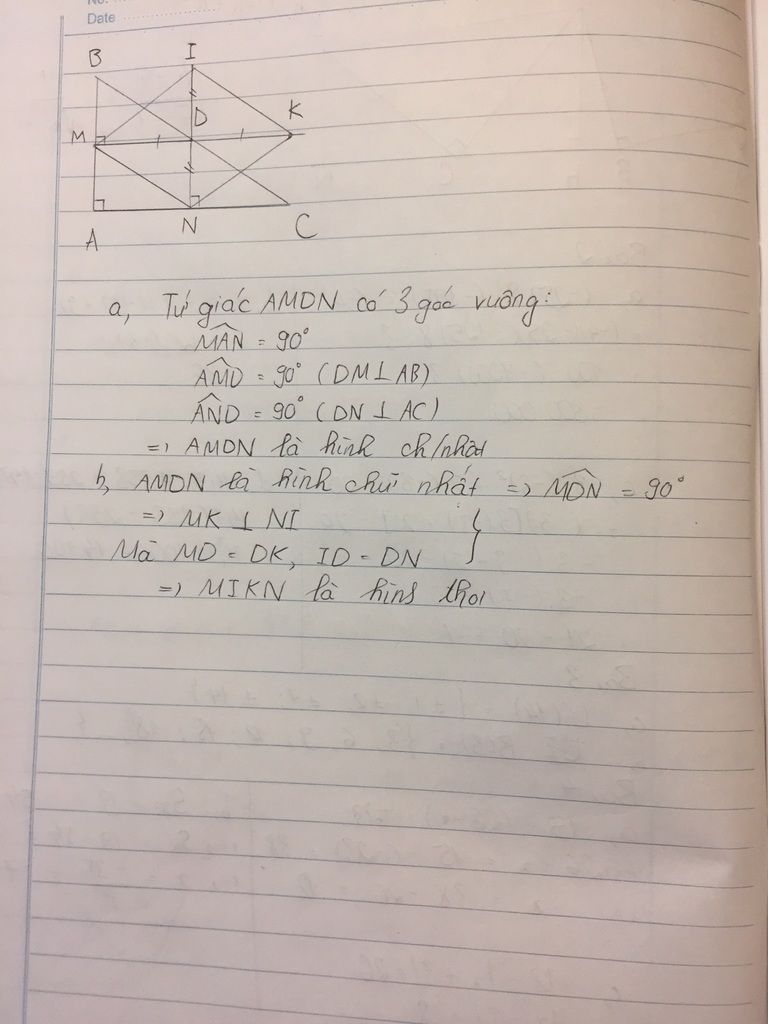 Date
B
I
D
K
M
A
N
C
a, Tứ giác AMDN có 3 góc vuông:
MAN = 90°
AMD = 90° (DM ⊥ AB)
AND = 90° (DN ⊥ AC)
=> AMDN là hình ch/nhật
b, AMDN là hình chữ nhất => MDN = 90°
=> MK ⊥ NI
Mà MD = DK, ID = DN
=> MIKN là hình thoi